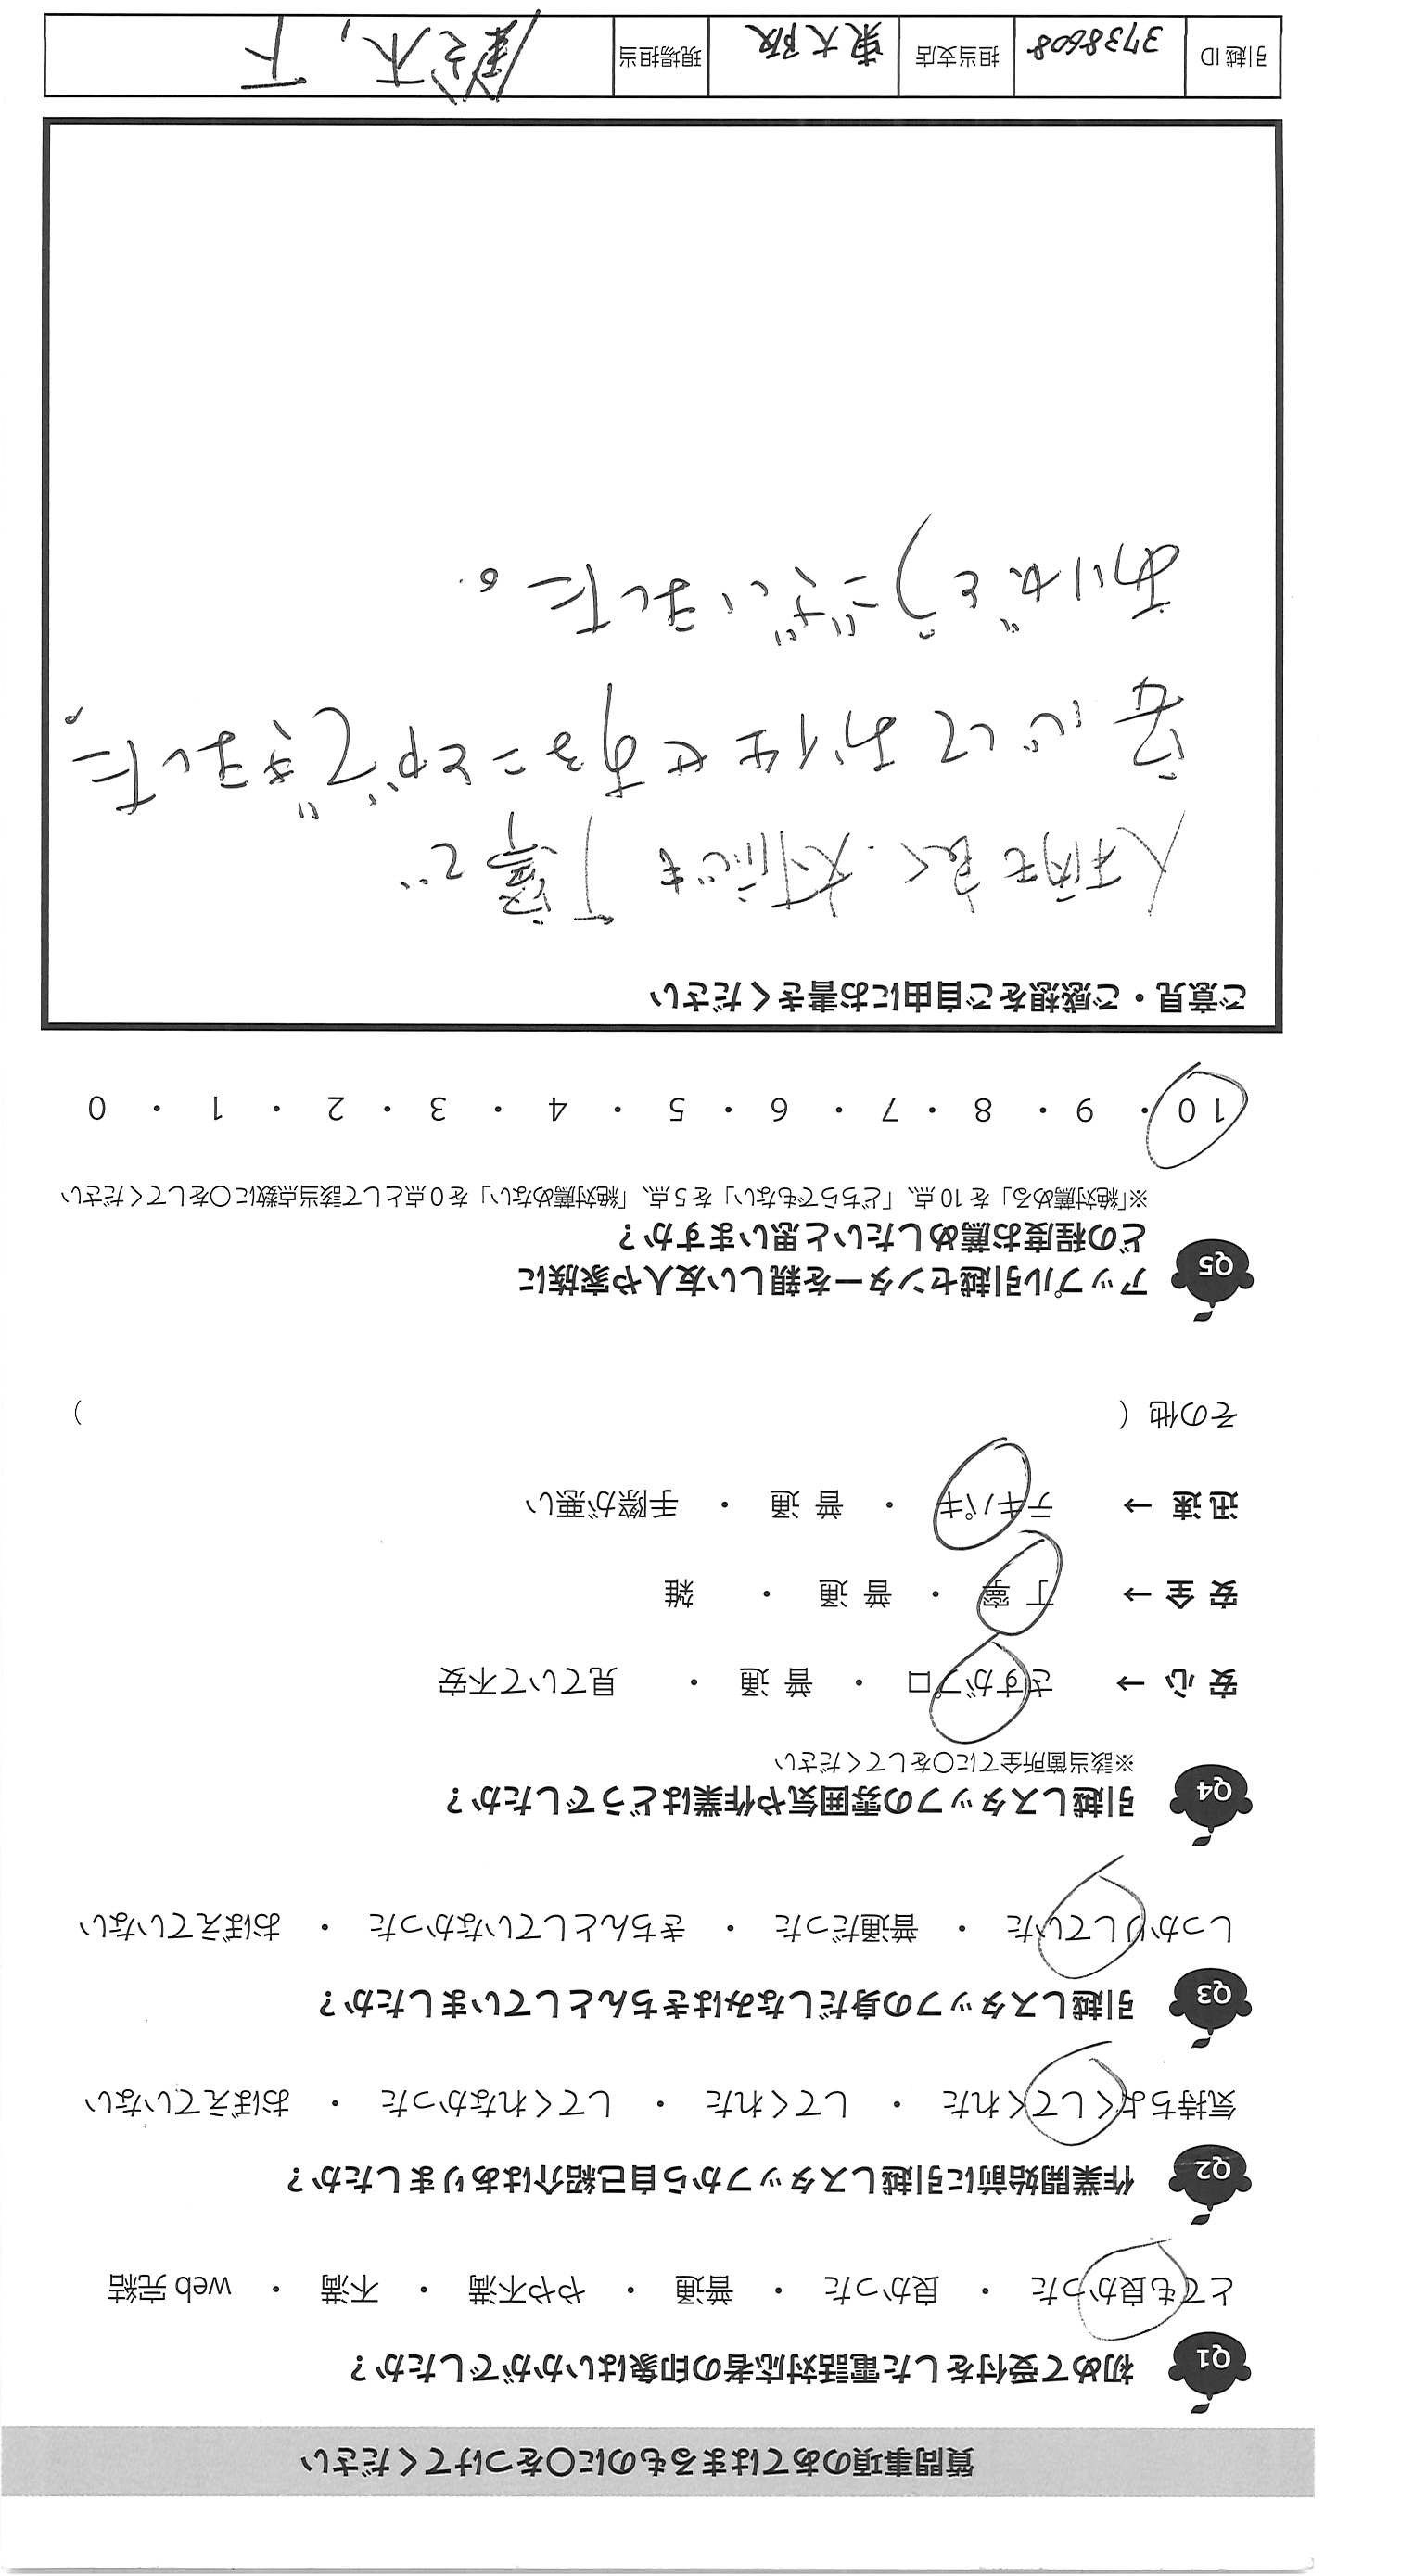 質問事項のあてはまるものに〇をつけてください
Q1 初めて受付をした電話対応者の印象はいかがでしたか？
とても良かった ・ 良かった ・ 普通 ・ やや不満 ・ 不満 ・ web 完結
Q2 作業開始前に引越しスタッフから自己紹介はありましたか？
気持ちよくしてくれた ・ してくれた ・ してくれなかった ・ おぼえていない
Q3 引越しスタッフの身だしなみはきちんとしていましたか？
しっかりしていた ・ 普通だった ・ きちんとしていなかった ・ おぼえていない
Q4 引越しスタッフの雰囲気や作業はどうでしたか？
※該当箇所全てに〇をしてください
安 心 → さすがプロ ・ 普 通 ・ 見ていて不安
安 全 → 丁 寧 ・ 普 通 ・ 雑
迅 速 → テキパキ ・ 普 通 ・ 手際が悪い
その他（ ）
Q5 アップル引越センターを親しい友人や家族に
どの程度お薦めしたいと思いますか？
※「絶対薦める」を 10 点、「どちらでもない」を 5 点、「絶対薦めない」を 0 点として該当点数に〇をしてください
10 ・ 9 ・ 8 ・ 7 ・ 6 ・ 5 ・ 4 ・ 3 ・ 2 ・ 1 ・ 0
ご意見・ご感想をご自由にお書きください
人柄も良く、対応も丁寧で
安心してお任せすることができました。
ありがとうございました。
引越 ID 3738608 担当支店 東大阪 現場担当 木下